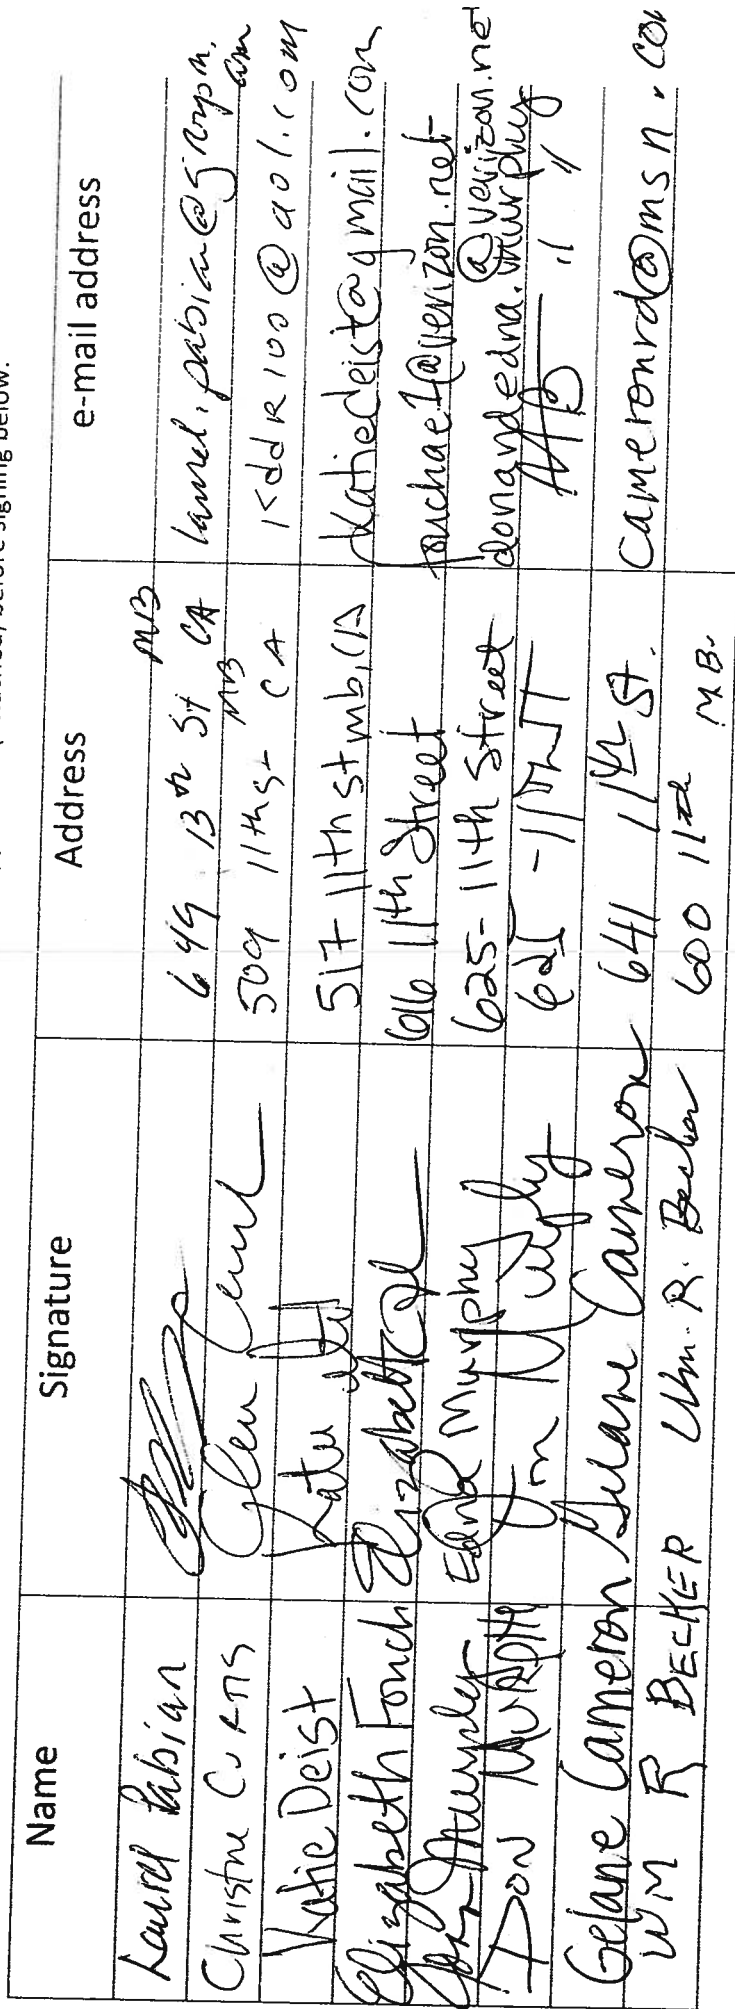 before signing below.
Name Signature Address e-mail address
Laurel Pabian 649 13th St MB CA laurel.pabian@
Christine Curtis 509 11th St MB CA KddR100@aol.com
Katie Deist Katie 517 11th st mb, CA katiedeist@gmail.com
Elizabeth Fouch Elizabeth 616 11th Street fouchael@verizon.net
Murphy Edna Murphy 625-11th Street donandedna.murphy@verizon.net
DON MURPHY Don Murphy 625-11th ST MB " "
Gelane Cameron Gelane Cameron 641 11th St. cameronrd@msn.com
WM R BECKER Wm. R. Becker 600 11th M.B.